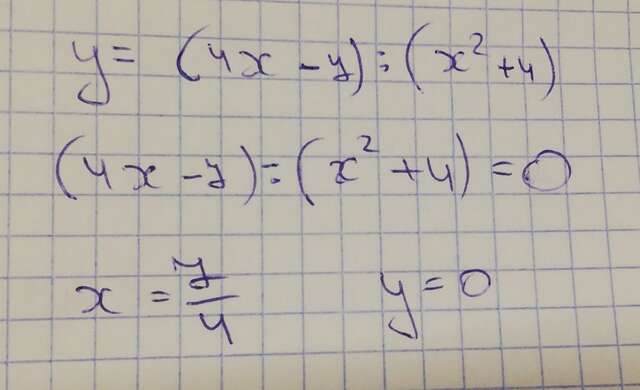 y = (4x - y) : (x² + 4)
(4x - y) : (x² + 4) = 0
x = y/4 y = 0